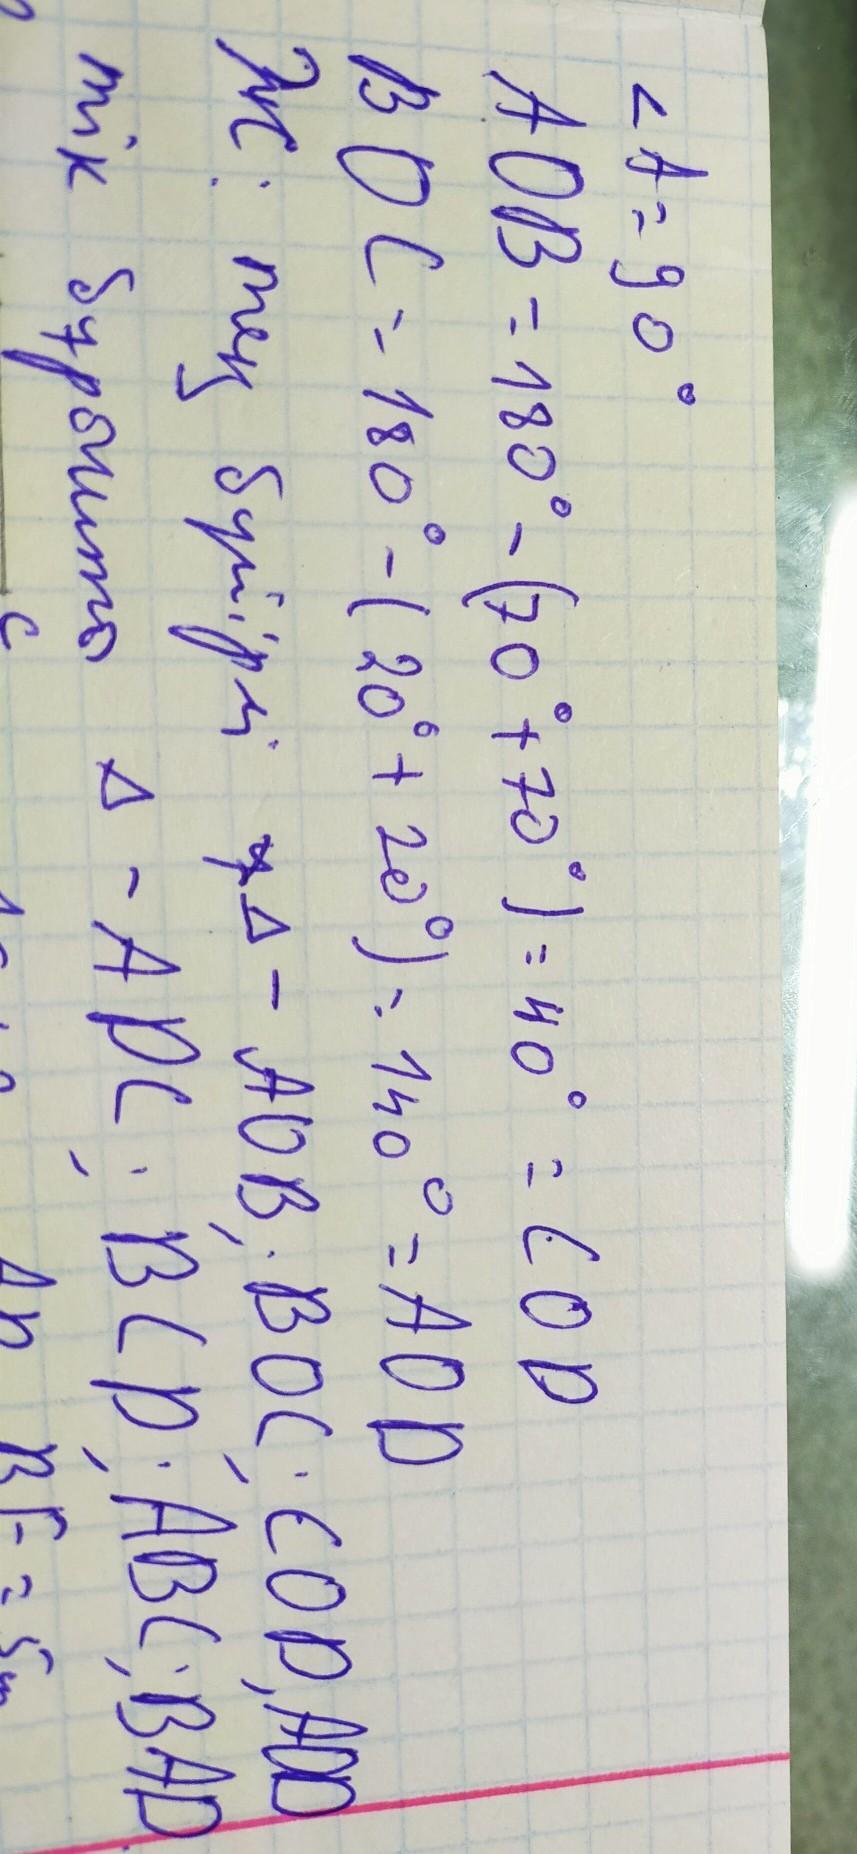 ∠A = 90°
AOB = 180° - (70° + 70°) = 40° = COD
BOC = 180° - (20° + 20°) = 140° = AOD
Ж: тең бүйірлі Δ - AOB, BOC, COD, AOD
тік бұрышты Δ - ADC, BCD, ABC, BAD